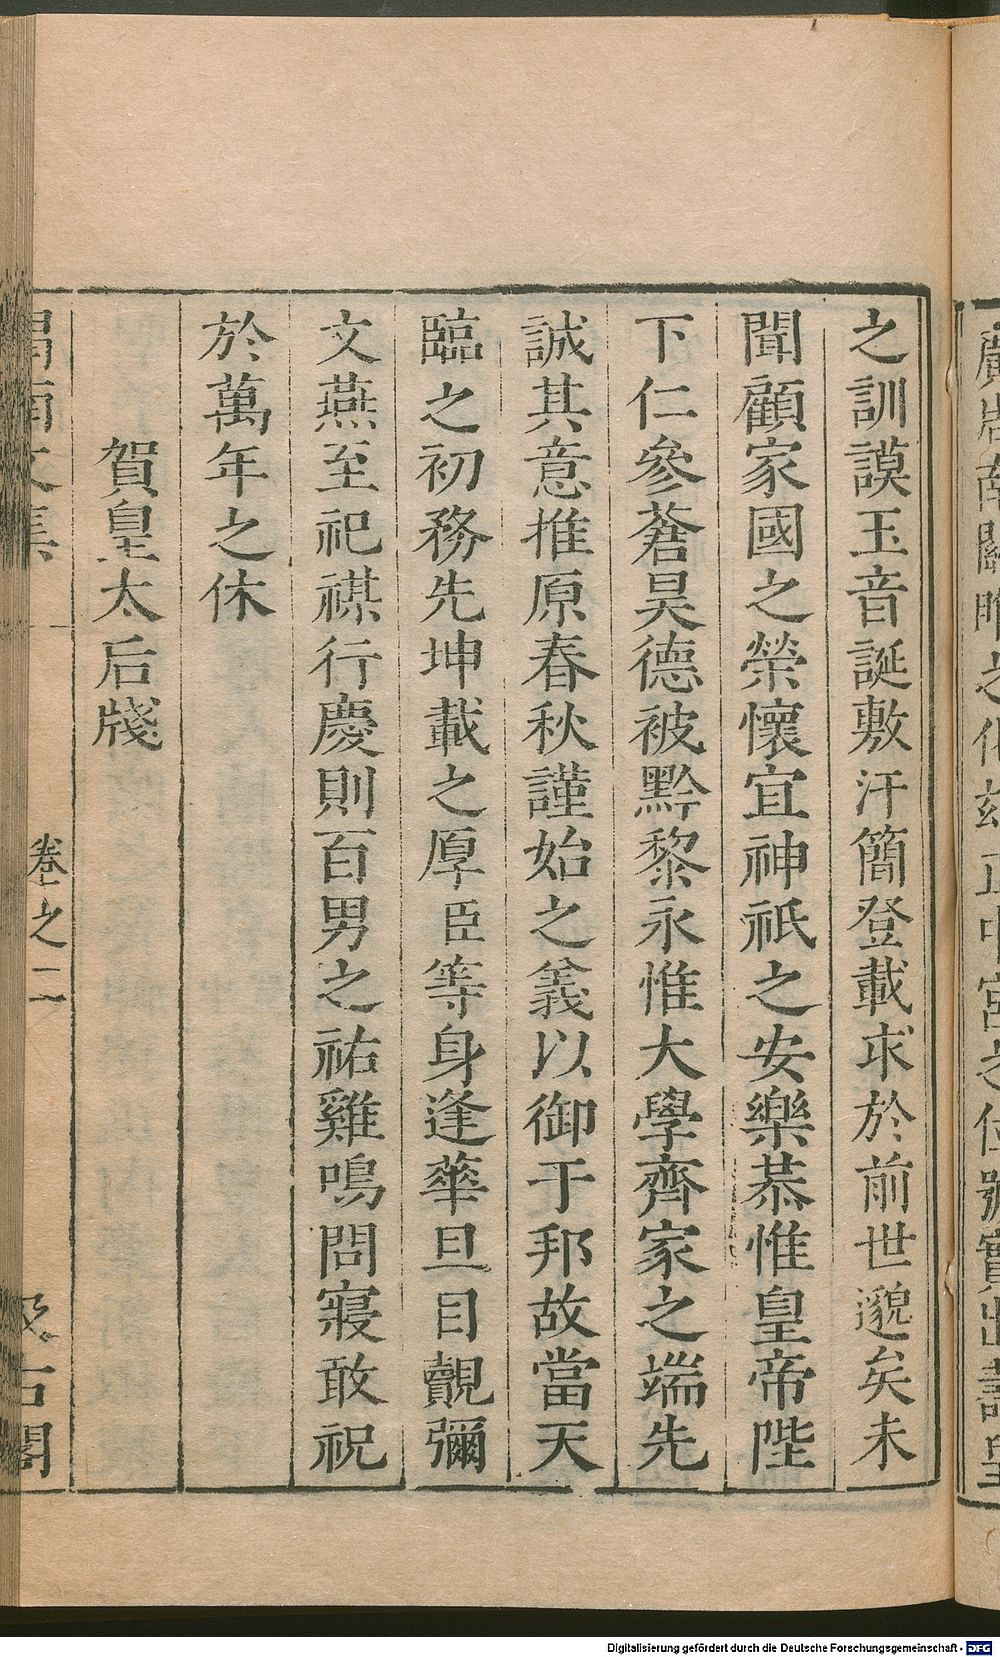 之訓謨玉音誕敷汗簡登載求於前世邈矣未
聞顧家國之榮懷宜神祇之安樂恭惟皇帝陛
下仁參蒼昊德被黔黎永惟大學齊家之端先
誠其意推原春秋謹始之義以御于邦故當天
臨之初務先坤載之厚臣等身逢華旦目覿彌
文燕至祀禖行慶則百男之祐雞鳴問寢敢祝
於萬年之休
賀皇太后牋
卷之二
古閣
之
正中宮之位號實出壽皇
Digitalisierung gefördert durch die Deutsche Forschungsgemeinschaft - DFG